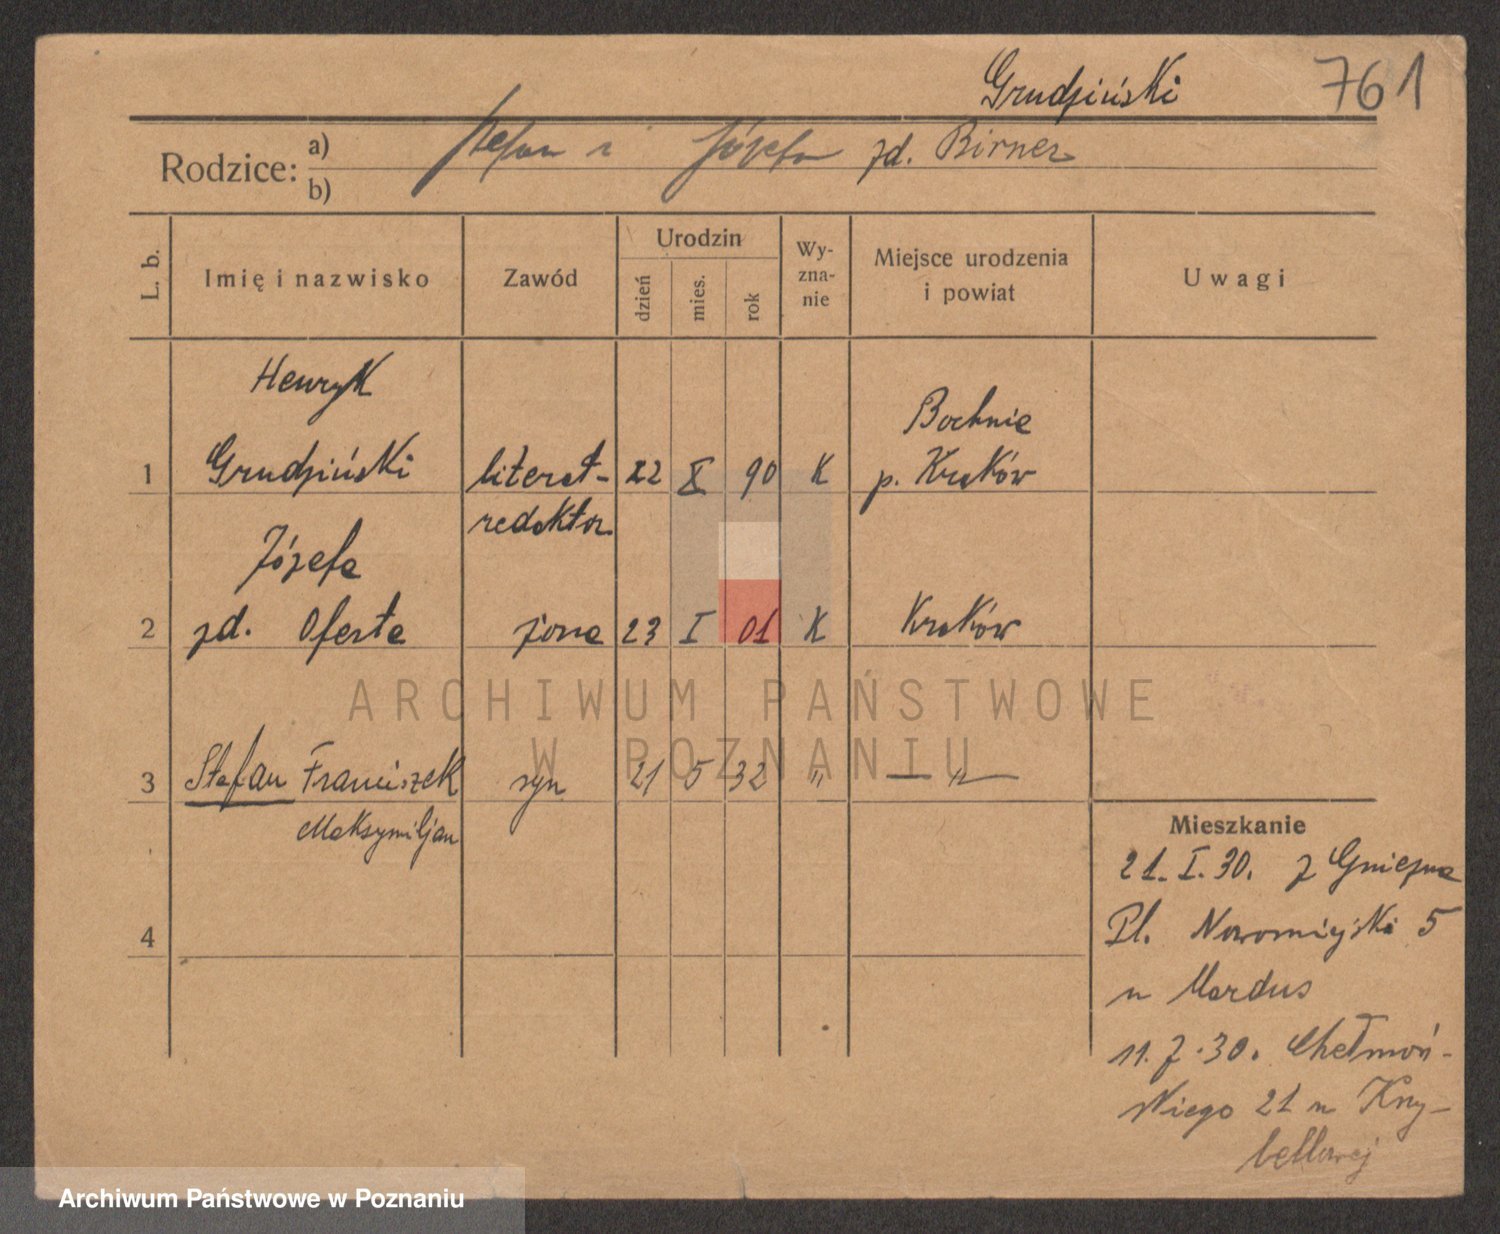 Grudziński 761
Rodzice: a) Stefan i Józefa zd. Birner
b)
L. b. Imię i nazwisko Zawód Urodzin dzień mies. rok Wy-zna-nie Miejsce urodzenia i powiat Uwagi
Henryk
Bochnie
1 Grudziński literat- 22 X 90 K p. Kraków
redaktor
Józefa
2 zd. Oferta żona 23 I 01 K Kraków
ARCHIWUM PAŃSTWOWE
W POZNANIU
3 Stefan Franciszek syn 21 5 32 " — " —
Maksymiljan
Mieszkanie
21. I. 30. z Gniezna
4
Pl. Nowomiejski 5
u Mardus
11. 7. 30. Chełmoń-
skiego 21 u Kny-
bellowej
Archiwum Państwowe w Poznaniu